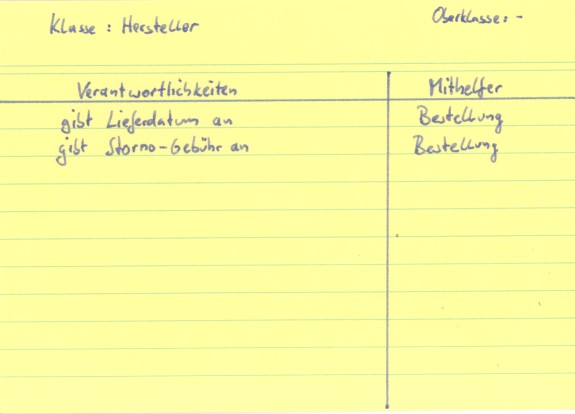 Klasse : Hersteller
Oberklasse: -
Verantwortlichkeiten Mithelfer
gibt Lieferdatum an Bestellung
gibt Storno-Gebühr an Bestellung